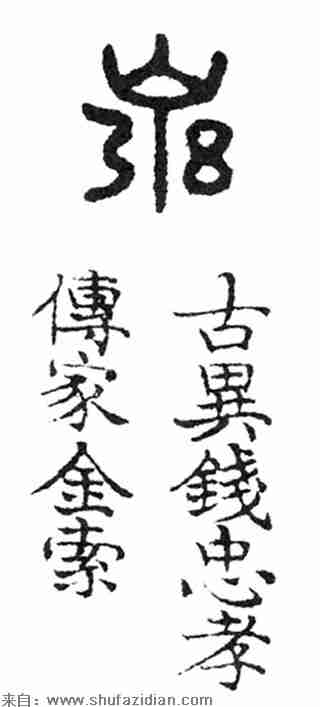 古異錢忠孝
傳家金索
来自：www.shufazidian.com